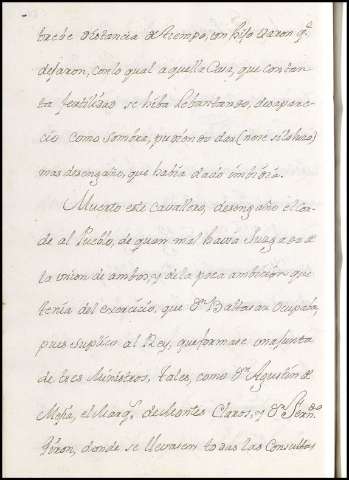 treue distancia de tiempo, un hijo varon q.
dejaron, con lo qual aquella Casa, que con tan-
ta fertilidad se hiba lebantando, desapare-
cio como sombra, pudiendo dar (no se si lo hizo)
mas desengaño, que había dado imbidia.
Muerto este cavallero, desengaño el Con-
de al Pueblo, de quan mal havia Juzgado de
la union de ambos, y de la poca ambicion que
tenía del exercicio, que Dn. Baltasar Ocupaba,
pues suplico al Rey, que formase una Junta
de tres Ministros, tales, como Dn. Agustin de
Mejia, el Marq.s de Montes Claros, y Dn. Fern.do
Giron, donde se llevasen todas las Consultas